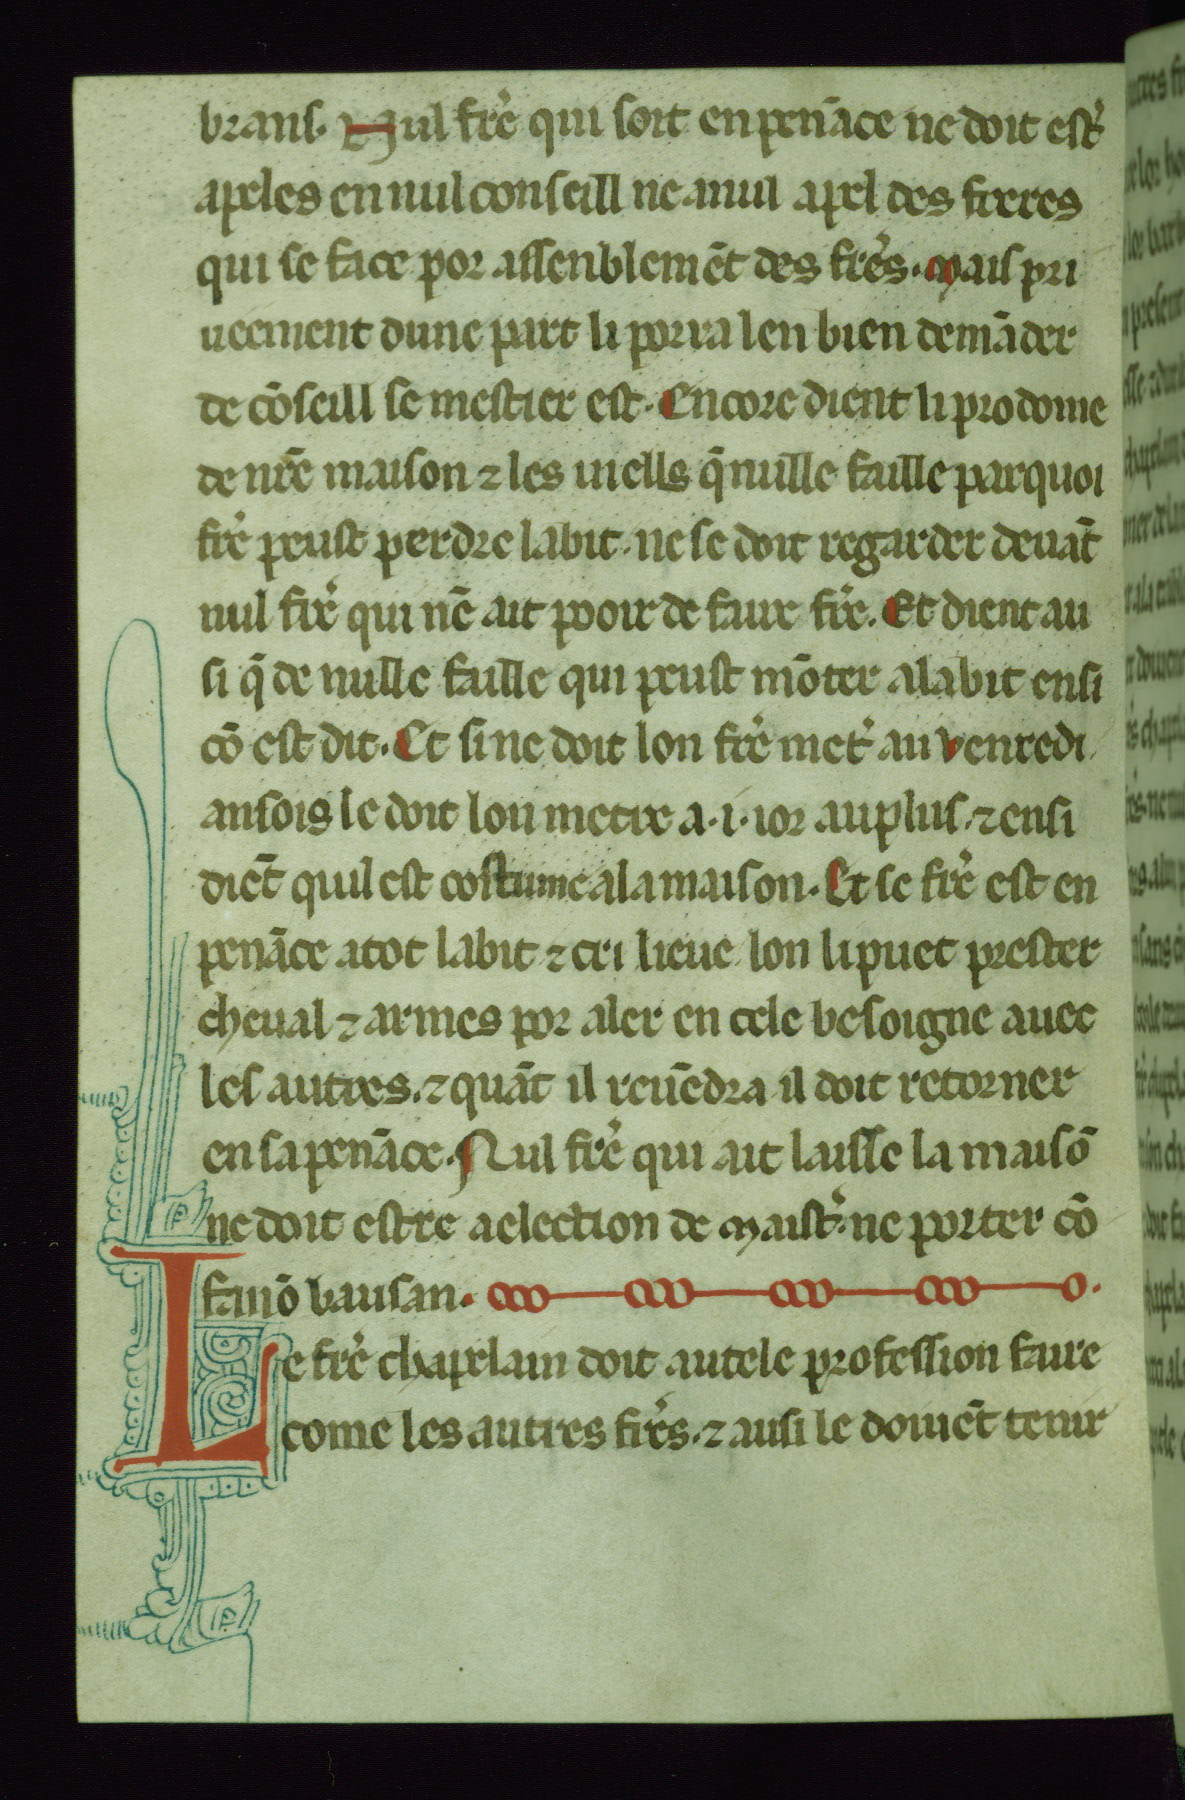 brans. Nul fre᷑ qui soit en penāce ne doit est᷑
apeles en nul conseill ne a nul apel des freres
qui se face por assenblemēt des fre᷑s. Mais pri
ueement dune part li porra len bien demāder
de cōseill se mestier est. Encore dient li prodome
de nr̄e maison ⁊ les uiells q̄ nulle faille par quoi
fre᷑ peust perdre labit. ne se doit regarder deuāt
nul fre᷑ qui nē ait pooir de faire fre᷑. Et dient au
si q̄ de nulle faille qui peust mōter a labit ensi
cō est dit. Et si ne doit lon fre᷑ met᷑ au venredi
ansois le doit lon metre a .i. ior au plus. ⁊ ensi
diēt quil est costume a la maison. Et se fre᷑ est en
penāce a tot labit ⁊ cri lieue lon li puet prester
cheual ⁊ armes por aler en cele besoigne auec
les autres. ⁊ quāt il reuēdra il doit retorner
en sa penāce. Nul fre᷑ qui ait laisse la maisō
ne doit estre a election de maist᷑. ne porter cō
fanō bausan.
Le fre᷑ chapelain doit autele profession faire
come les autres fre᷑s. ⁊ ausi le doiuēt tenir